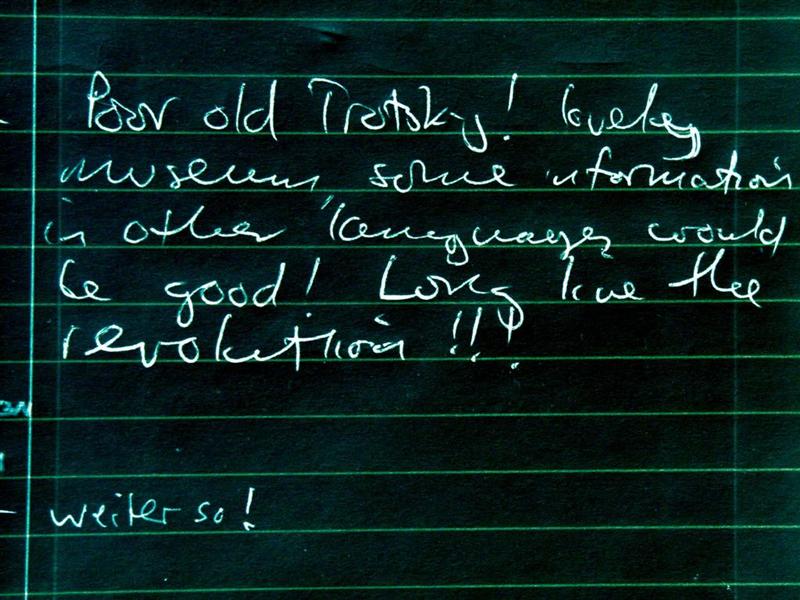 Poor old Trotsky! lovely
museum, some information
in other languages would
be good! Long live the
revolution!!!
weiter so!